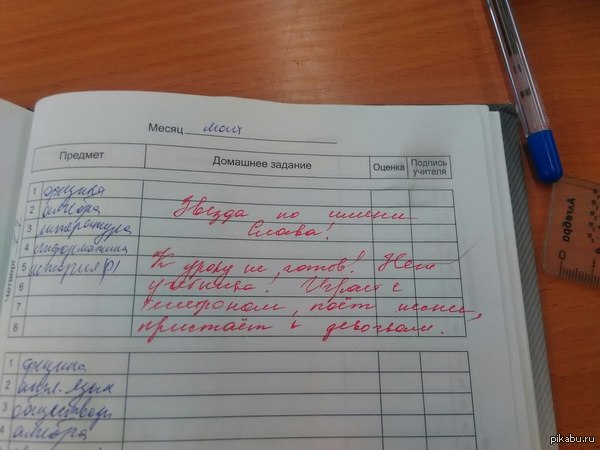 Месяц март
Предмет Домашнее задание Оценка Подпись учителя
1 физика
2 алгебра
3 литература
4 информатика
5 история (р)
6
7
8
Звезда по имени
Слава!
К уроку не готов! Нет
учебника! Играет с
телефоном, поёт песни,
пристаёт к девочкам.
Четверг
1 физика
2 англ. язык
3 обществозн
4 алгебра
0
pikabu.ru